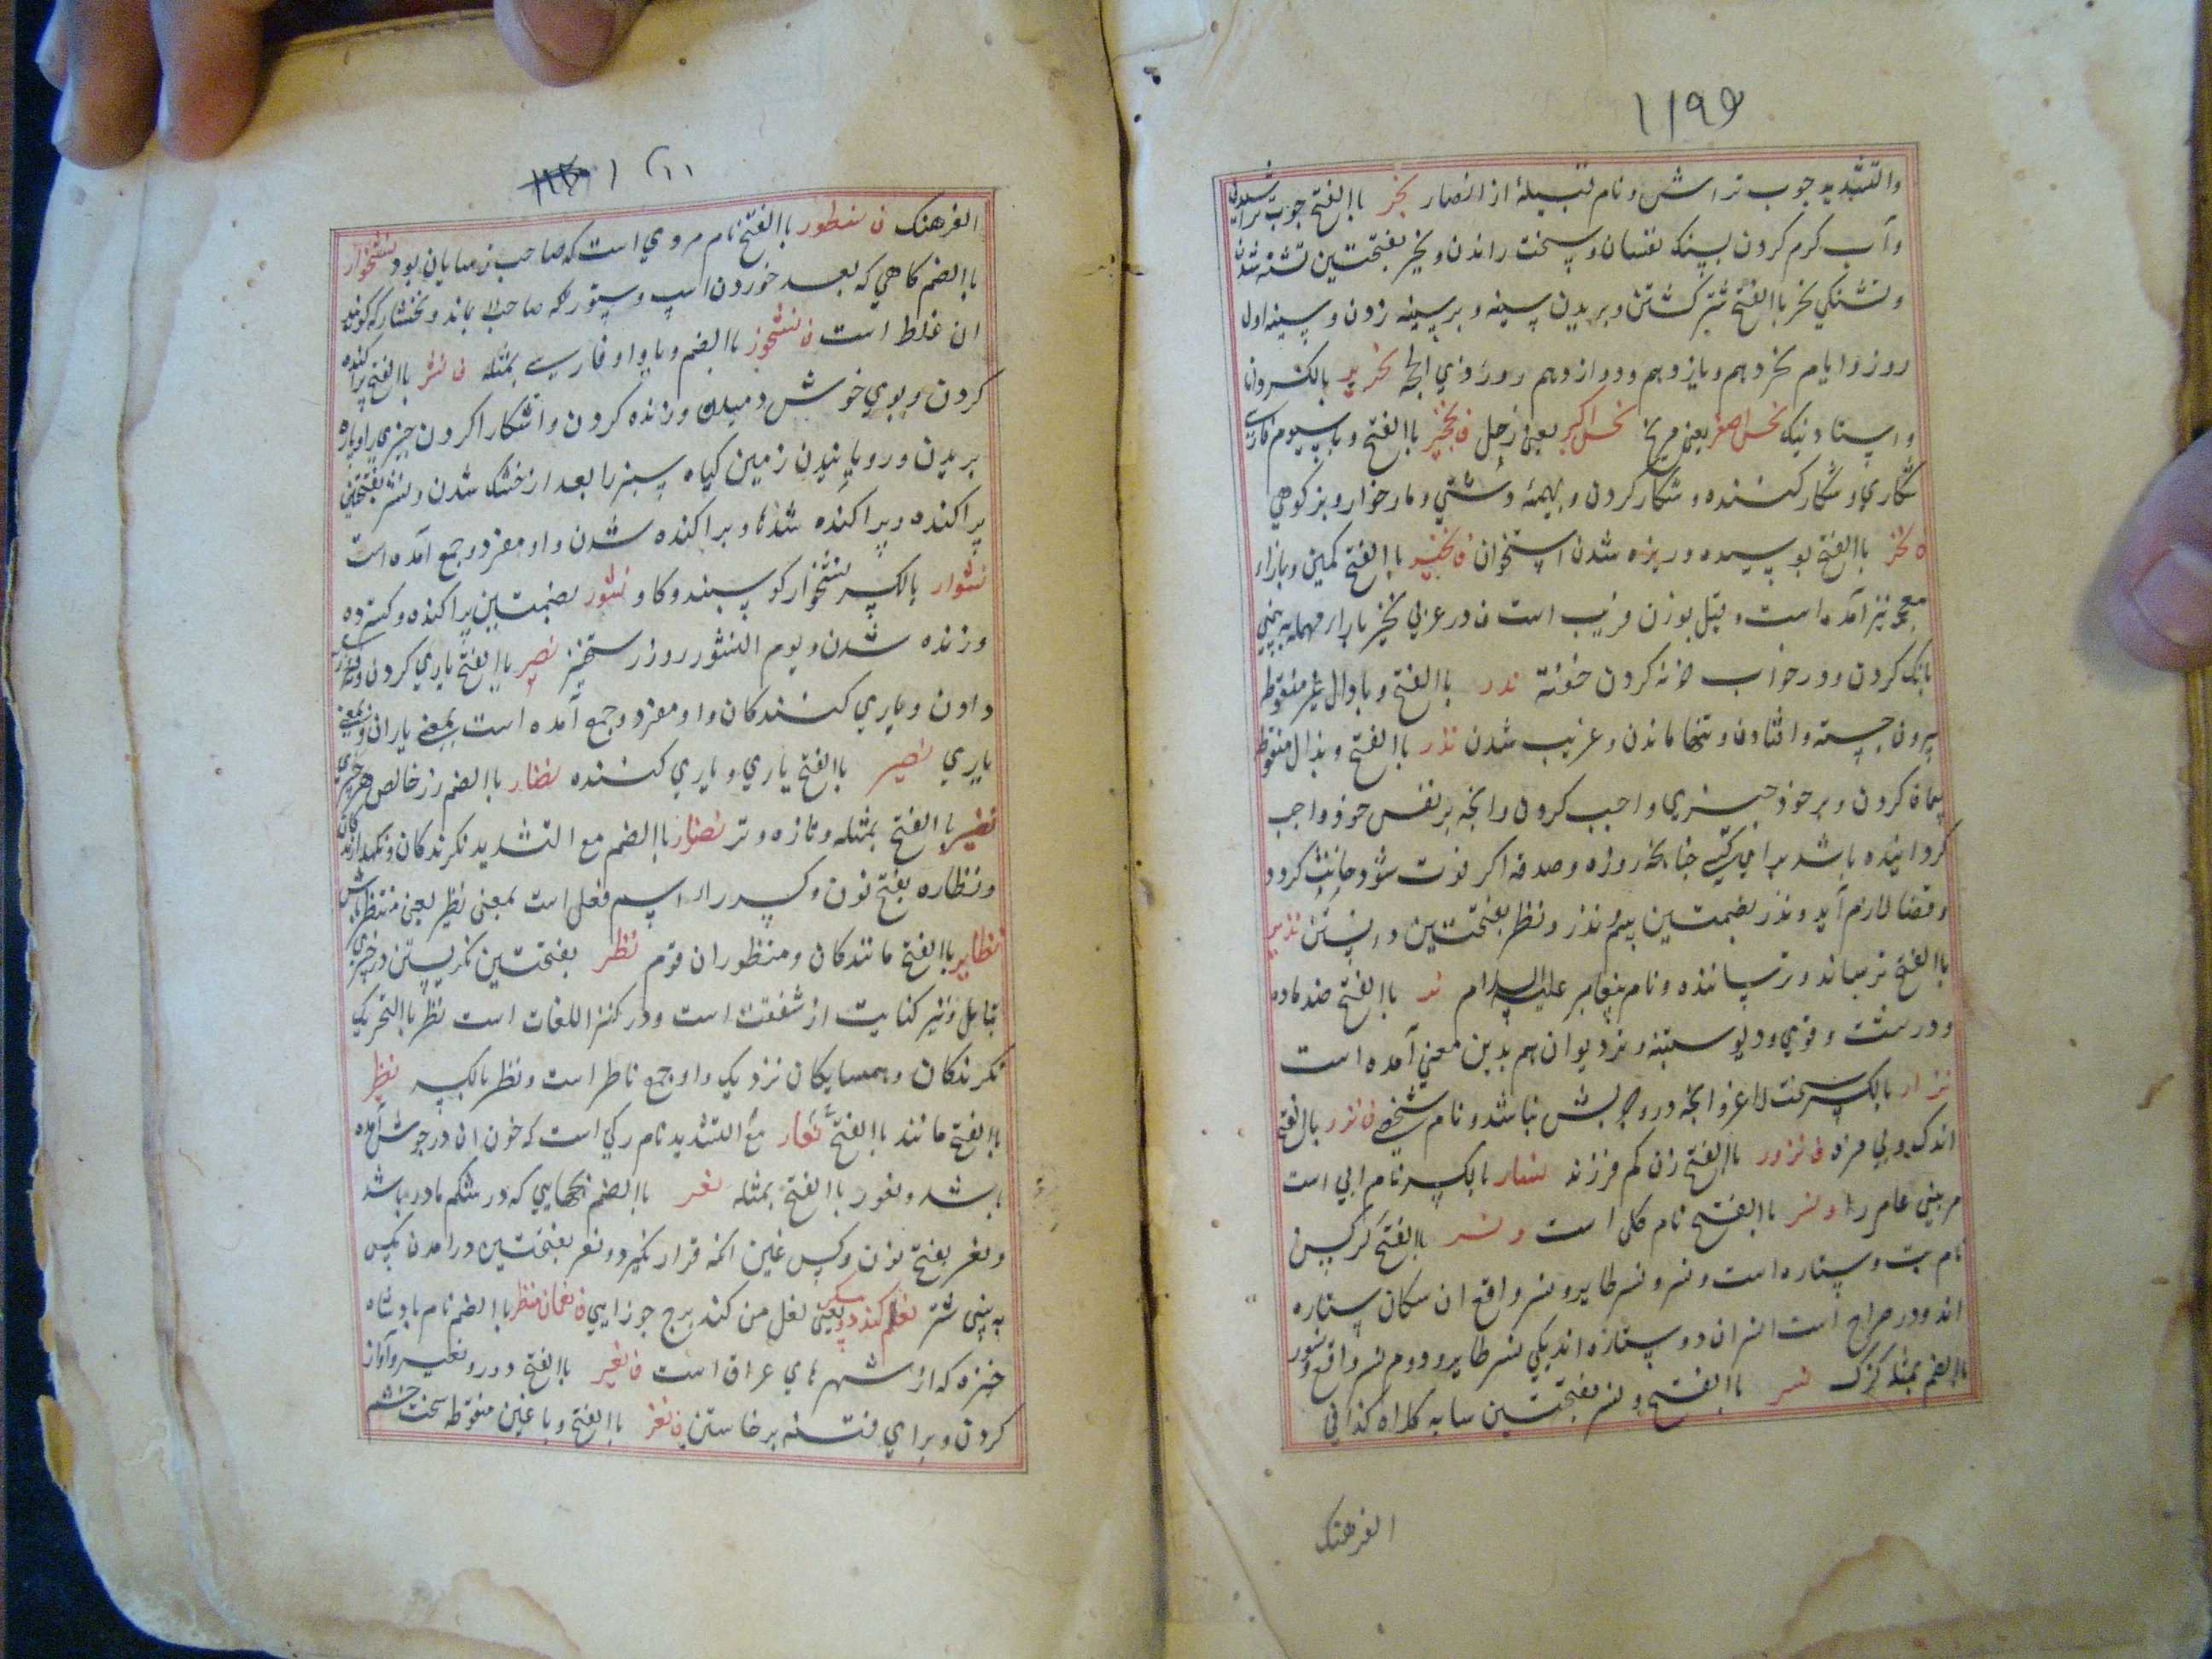 ۱۱۹۹
والتشدید چوب تراش و نام قبیلهٔ از انصار نجر باالفتح چوب تراشیدن
وآب کرم کردن بسنک تفسان و سخت راندن و نجر بفتحتین تشنه شدن
و تشنکی نحر باالفتح شتر کشتن و بریدن سینه و بر سینه زدن و سینه اول
روز و ایام نحر دهم و یازدهم و دوازدهم روز ذی الحجه نحریر بالکسر دانا
و استاد نیک نحس اصغر یعنی مریخ نحس اکبر یعنی زحل ف نخجیر باالفتح و با سیوم فارسی
شکاری و شکار کننده و شکار کردن و بهیمهٔ دشتی و مار خوار و بز کوهی
نخر باالفتح بوسیده و ریزه شدن استخوان ف نخیز باالفتح کمین و بازار
معجمه نیز آمده است و قیل بوزن فریب است ف در عربی نخیر با راء مهمله به بینی
بانک کردن و در خواب خرنه کردن خفته ندر باالفتح و با دال غیر منقوطه
بیرون جسته و افتادن و تنها ماندن و غریب شدن نذر باالفتح و بذال منقوطه
پیمان کردن و بر خود چیزی واجب کردن و آنچه بر نفس خود واجب
کردانیده باشد برای کسی چنانچه روزه و صدقه اکر فوت شود حانث کردد
و قضا لازم آید و نذر بضمتین بیم نذر و نظر بفتحتین دانستن نذیر
باالفتح ترساند و ترساننده و نام پیغامبر علیه السلام نر باالفتح ضد ماده
و درشت و قوی و دیو سنبه و نزد یوان هم بدین معنی آمده است
نزار بالکسر سخت لاغر و آنچه در و چربش نباشد و نام شخصی ف نزر باالفتح
اندک و بی مزه ف نزور باالفتح زن کم فرزند نسار بالکسر نام آبی است
مر بنی عامر را و نسر باالفتح نام کلی است و نسر باالفتح کرکس
نام بت و ستاره است و نسر و نسر طایر و نسر واقع ان سکان ستاره
اند و در صراح است النسران دو ستاره اند یکی نسر طایر و دوم نسر واقع و نسور
باالضم بمثله کزک نسر باالفتح و نسر بفتحتین سایه کلاه کذا فی
الفرهنک
۱۲۱۱
الفرهنک ف نسطور باالفتح نام مردی است که صاحب ترسایان بود نشخوار
باالضم کاهی که بعد خوردن اسپ و ستور که صاحب بماند و نخشار که کویند
ان غلط است ف نشخور باالضم و با واو فارسی بمثله ف نشر باالفتح پراکنده
کردن و بوی خوش دمیدن و زنده کردن و آشکارا کردن چیزی را و پاره
بریدن و رویانیدن زمین کیاه سبز را بعد از خشک شدن و نشر بفتحتین
پراکنده و پراکنده شدها و پراکنده شدن و او مفرد و جمع آمده است
نشوار بالکسر نشخوار کوسپند و کاو نشور بضمتین پراکنده و کسترده
و زنده شدن و یوم النشور روز رستخیز نصر باالفتح یاری کردن و فیروزی
دادن و یاری کنندکان و او مفرد و جمع آمده است بمعنی یاران و بمعنی
یاری نصیر باالفتح یاری و یاری کننده نضار باالضم زر خالص هر چیزی
نضیر باالفتح بمثله و تازه و تر نظار باالضم مع التشدید نکرندکان و نکهدارندکان
و نظاره بفتح نون و کسر راء اسم فعل است بمعنی نظر یعنی منتظر باش
نظایر باالفتح مانندکان و منظوران قوم نظر بفتحتین نکریستن در چیزی
بتامل و نیز کنایت از شفقت است و در کنز اللغات است نظر باالتحریک
نکرندکان و همسایکان نزدیک و او جمع ناظر است و نظر بالکسر نظیر
باالفتح مانند باالفتح نعار مع التشدید نام رکی است که خون ان در جوش آمده
باشد و نعور باالفتح بمثله نعر باالضم بچهایی که در شکم مادر باشد
و نعر بفتح نون و کسر عین آنکه قرار نکیرد و نعر بفتحتین درآمدن مکس
به بینی شتر نعلم کند دو پیکر یعنی نعل من کند برج جوزایی ف نعمان منظر باالضم نام بادشاه
خیره که از شهرهای عراق است ف نعیر باالفتح دور و نعیر و آواز
کردن و برای فتنه برخاستن ف نغر باالفتح و با غین منقوطه سخت خشم